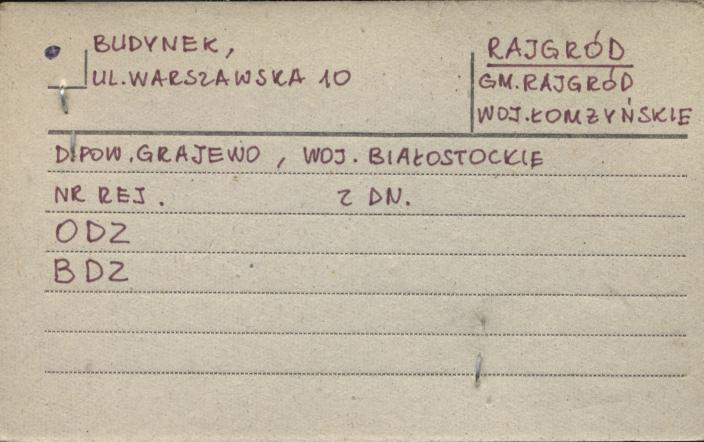 BUDYNEK,
UL. WARSZAWSKA 10
RAJGRÓD
GM. RAJGRÓD
WOJ. ŁOMZYŃSKIE
D.POW. GRAJEWO, WOJ. BIAŁOSTOCKIE
NR REJ. Z DN.
ODZ
BDZ